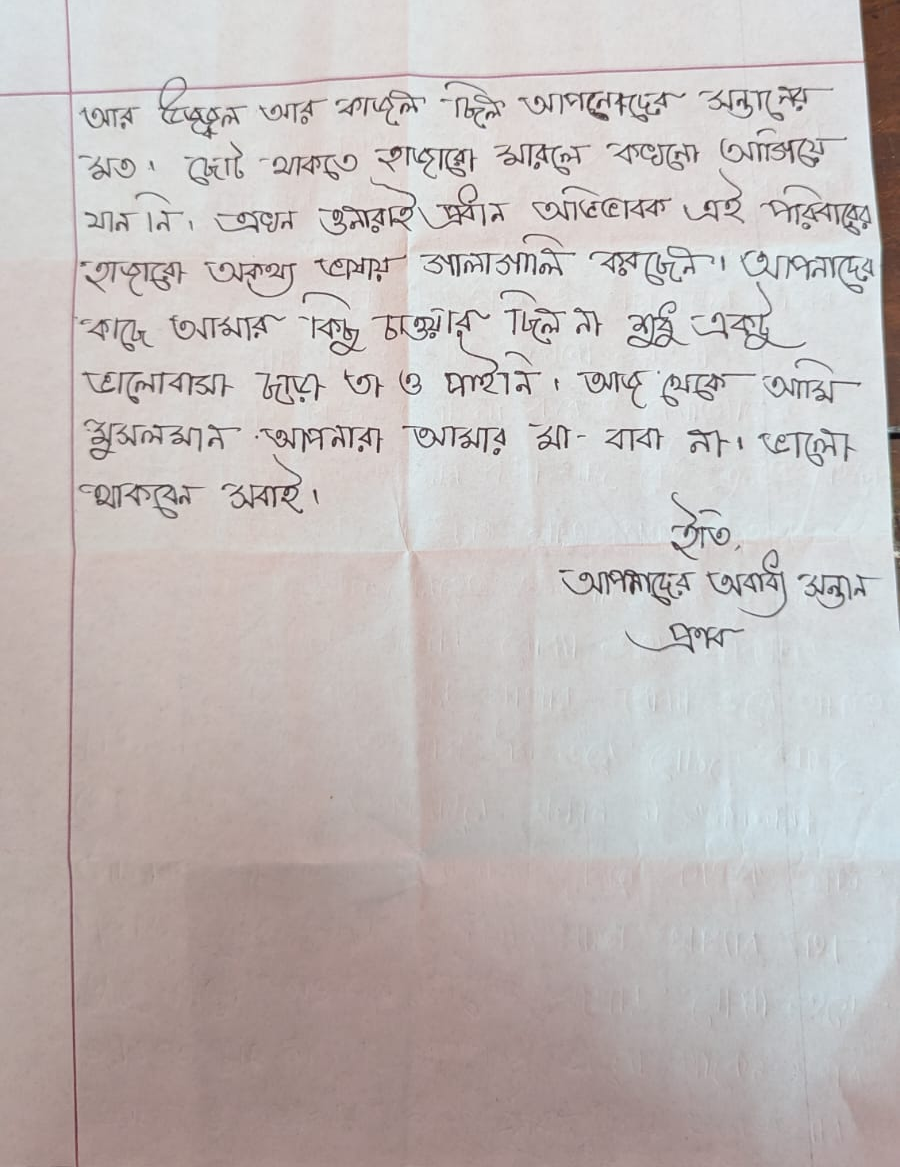 আর উজ্জ্বল আর কাজল ছিল আপনেদের সন্তানের
মত। ছোট থাকতে হাজারো মারলে কখনো আগিয়ে
যান নি। এখন ওনারাই প্রবীন অভিভাবক এই পরিবারের
হাজারো অকথ্য ভাষায় গালাগালি করছেন। আপনাদের
কাছে আমার কিছু চাওয়ার ছিল না শুধু একটু
ভালোবাসা ছাড়া তা ও পাইনি। আজ থেকে আমি
মুসলমান আপনারা আমার মা-বাবা না। ভালো
থাকবেন সবাই।
ইতি,
আপনাদের অবাধ্য সন্তান
প্রণব